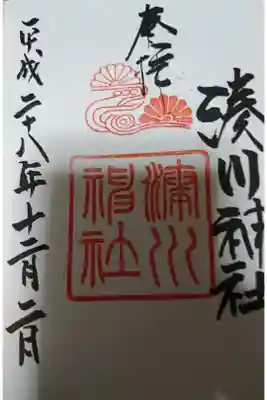 奉拝
湊川神社
湊川神社
平成二十八年十二月二日